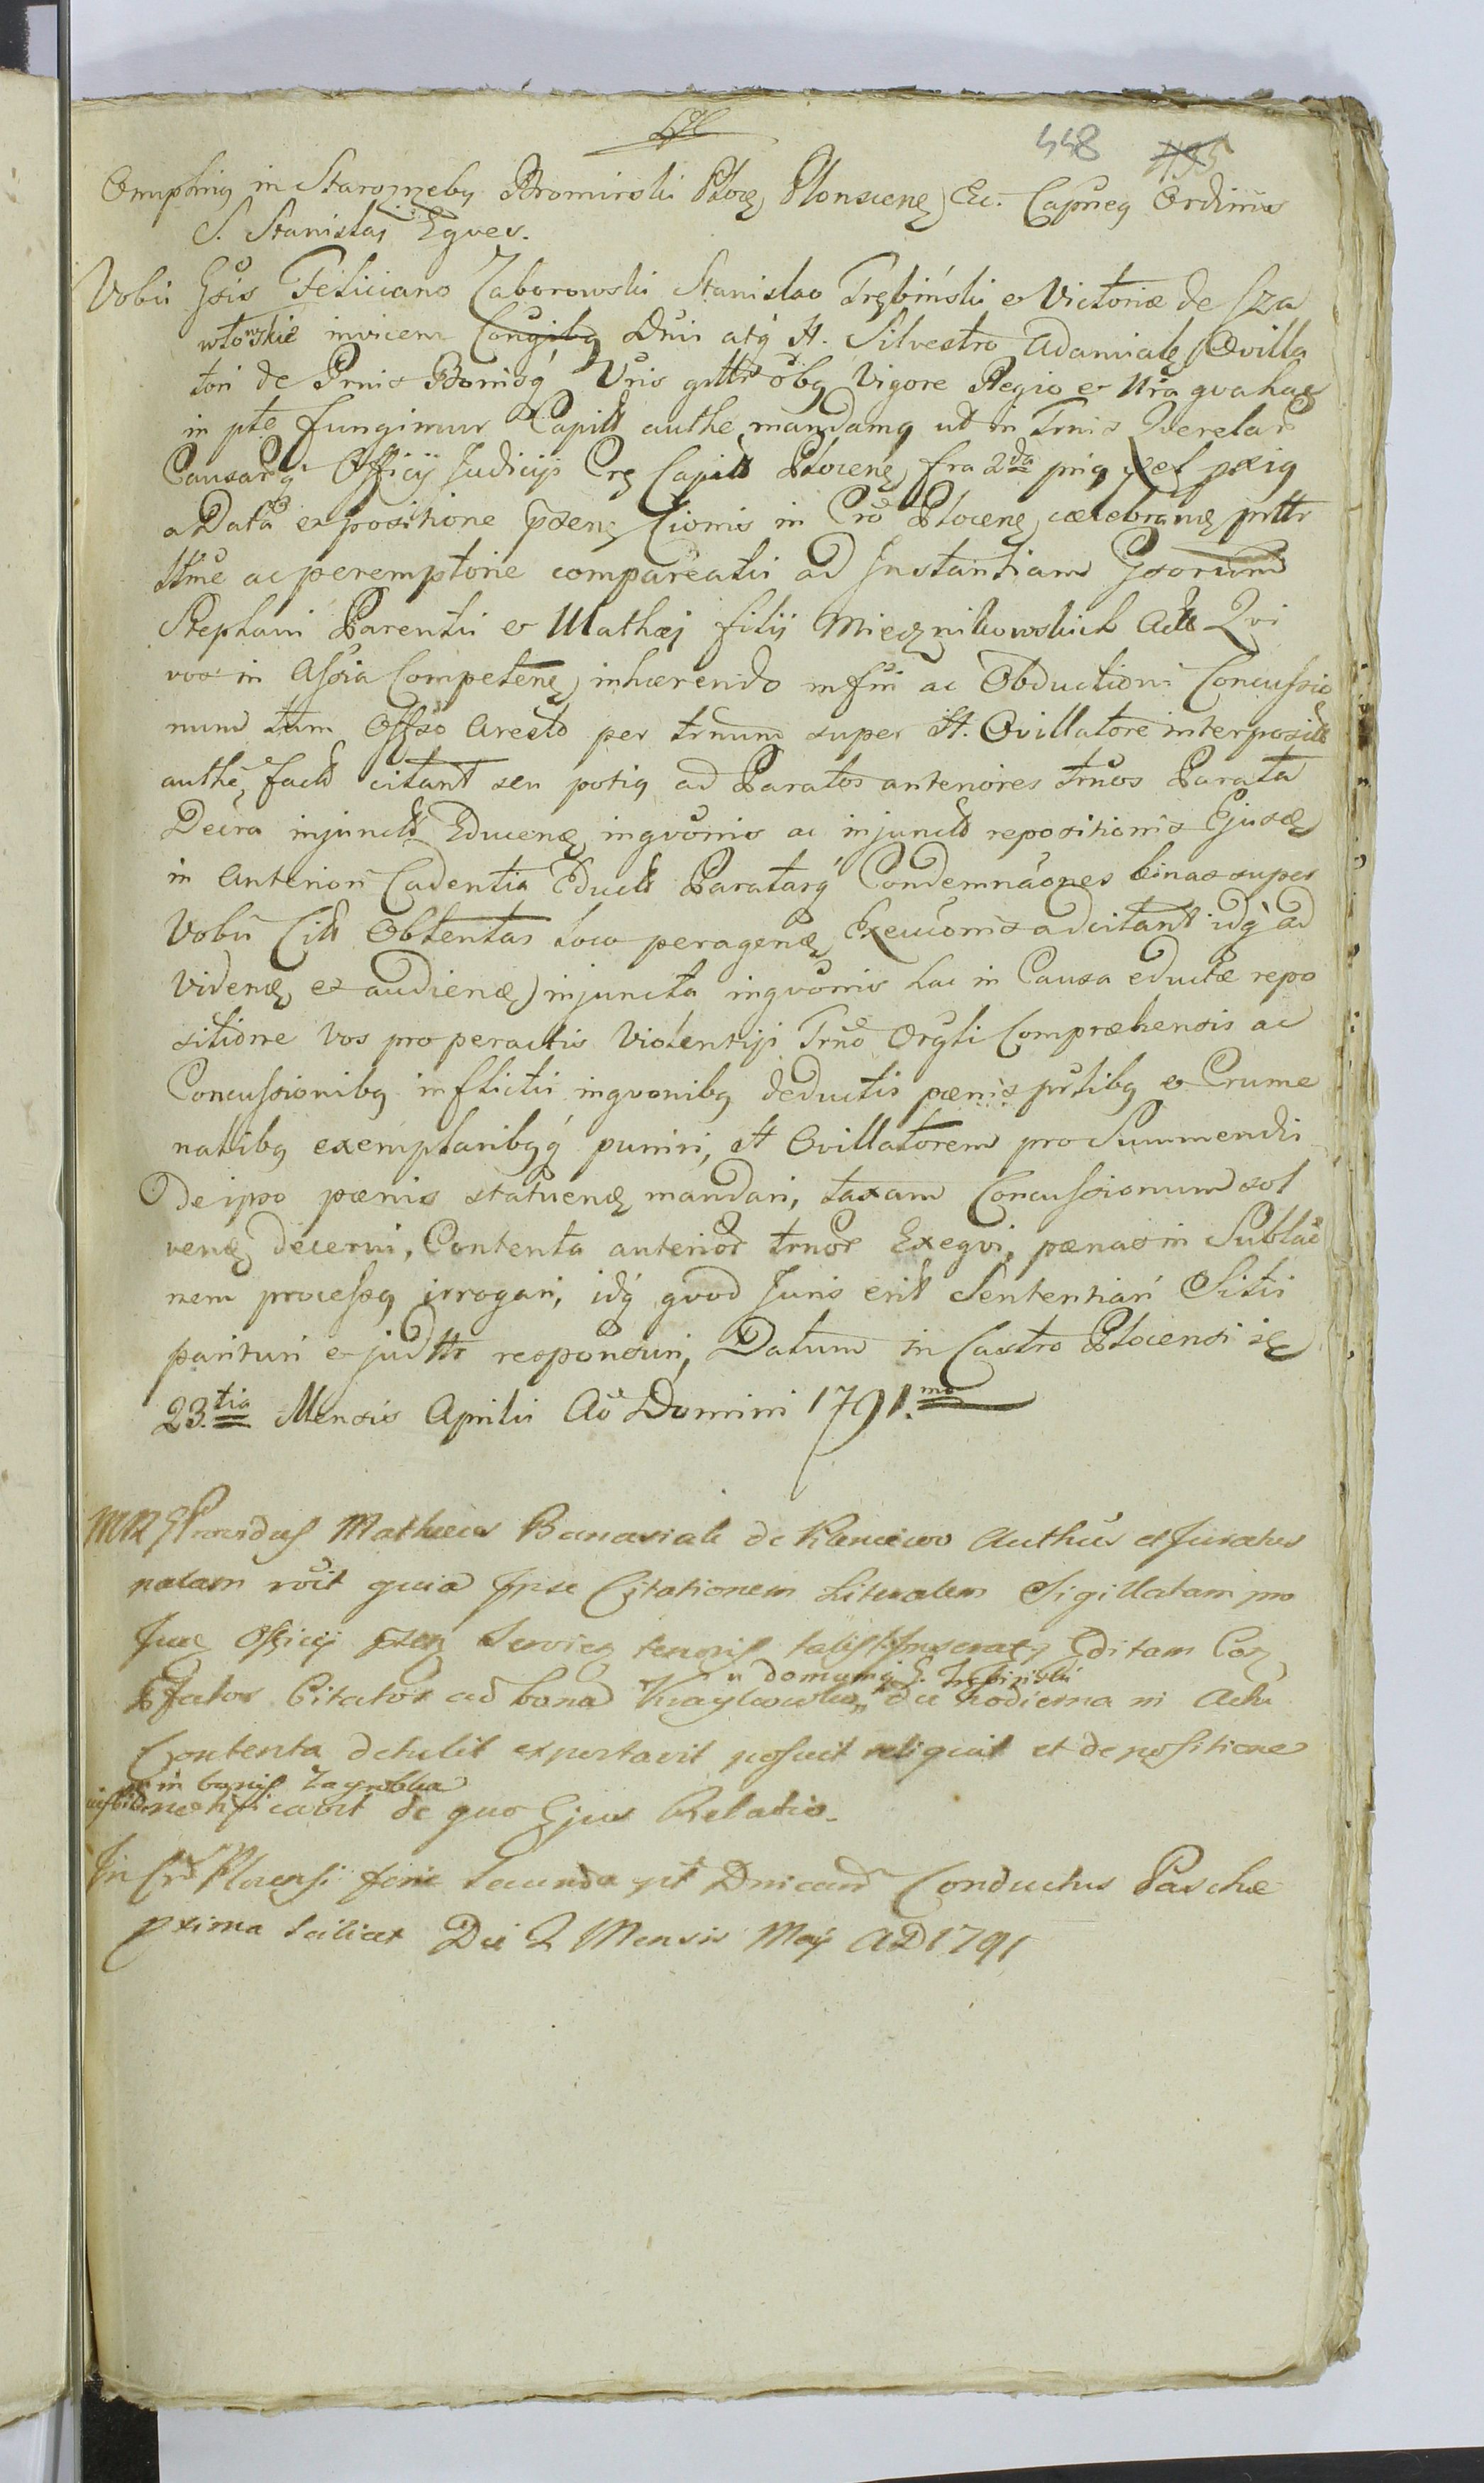 448 495
Onuphrig in Starozreby Bromirski Ploce, Plonscene, Ec. Capneg Ordinis
S. Stanislaj Eques.
Vobis Gsis Feliciano Zaborowski Stanislao Trębiński et Victoriæ de Sza
włowskie invicem Congibg Dnis atq H. Silvestro Adamiak Ovilla
tori de Prnis Bonisq Vris gnltr obg Vigore Regio et Nra qva hac
in pte fungimur Capitt authe mandamg ut in Trnis Querelar
Causarq Officij Judicijs Crg Capitt Plocene, fra 2da prig vel pxig
a Data et positione pxene Cionis in Cro Plocene, cælebrane pnltr
ltme ac peremptorie compareatis ad Instantiam Gsorum
Stephani Parentis et Mathæj filij Miecznikowskich Actt Qvi
vos in Assia Competene, inhærendo insfni ac Obductioni Concussio
num tum Offso Aresto per trnum super H. Ovillatore interposit
authe, fact citant seu potig ad Paratos anteriores trnos Parata
Decra injunctt Educene, inqvonis ac injunct repositionis Ejusd
in Anteriori Cadentia Eductt Paratarq Condemnaones binas super
Vobis Citt Obtentas loco peragene, Execuonis adcitant idq ad
videne, et audiene, injuncta inqvonis hac in Causa eductæ repo
sitione Vos pro peractis Violentijs Trno Orgli Compræhensis ac
Concussionibg inflictis inqvonibg deductis pænis prlibg et Crume
nalibg exemplaribgq puniri, H Ovillatorem pro Summendis
De ipso pænis statuene, mandari, taxam Concussionum sol
vene, decerni, Contenta anterior trnor Exeqvi, pænas in Sublae
nem processg irrogari, idq qvod Juris erit Sententiari Sitis
parituri et judltr responsuri, Datum in Castro Plocensi die
23.tia Mensis Aprilis Ao Domini 1791.mo
Providus Mathæus Banasiak de Kanciewo Authus et Juratus
palam roit quia Ipse Citationem Literalem Sigillatam pro
Jure Officij pxen, Servien tenoris talis Inserat, Editam Cog
Pfatos Citatos ad bona Kraykowko,, die hodierna in Actu
n domumq G. Trębiński
Contenta detulit exportavit posuit reliquit et de positione
et in bonis Zagroba
ibidem notificavit de quo Ejus Relatio.
In Cro Plocensi feria Secunda pt Dnicam Conductus Paschæ
pxima Scilicet Die 2 Mensis Maij AD 1791